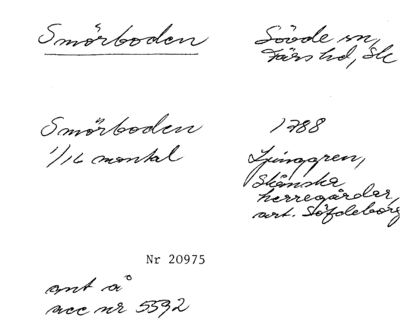 Smörboden
Sövde sn,
Färs hd, Sk
Smörboden
1/16 mantal
1788
Ljunggren,
Skånska
herregårdar,
art. Söfdeborg
Nr 20975
ant å
acc nr 5592